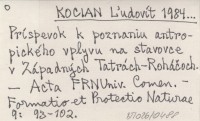 KOCIAN Ľudovít 1984...
Príspevok k poznaniu antro-
pického vplyvu na stavovce
v Západných Tatrách-Roháčoch.
— Acta FRNUniv. Comen. –
Formatio et Protectio Naturae
9: 93-102.